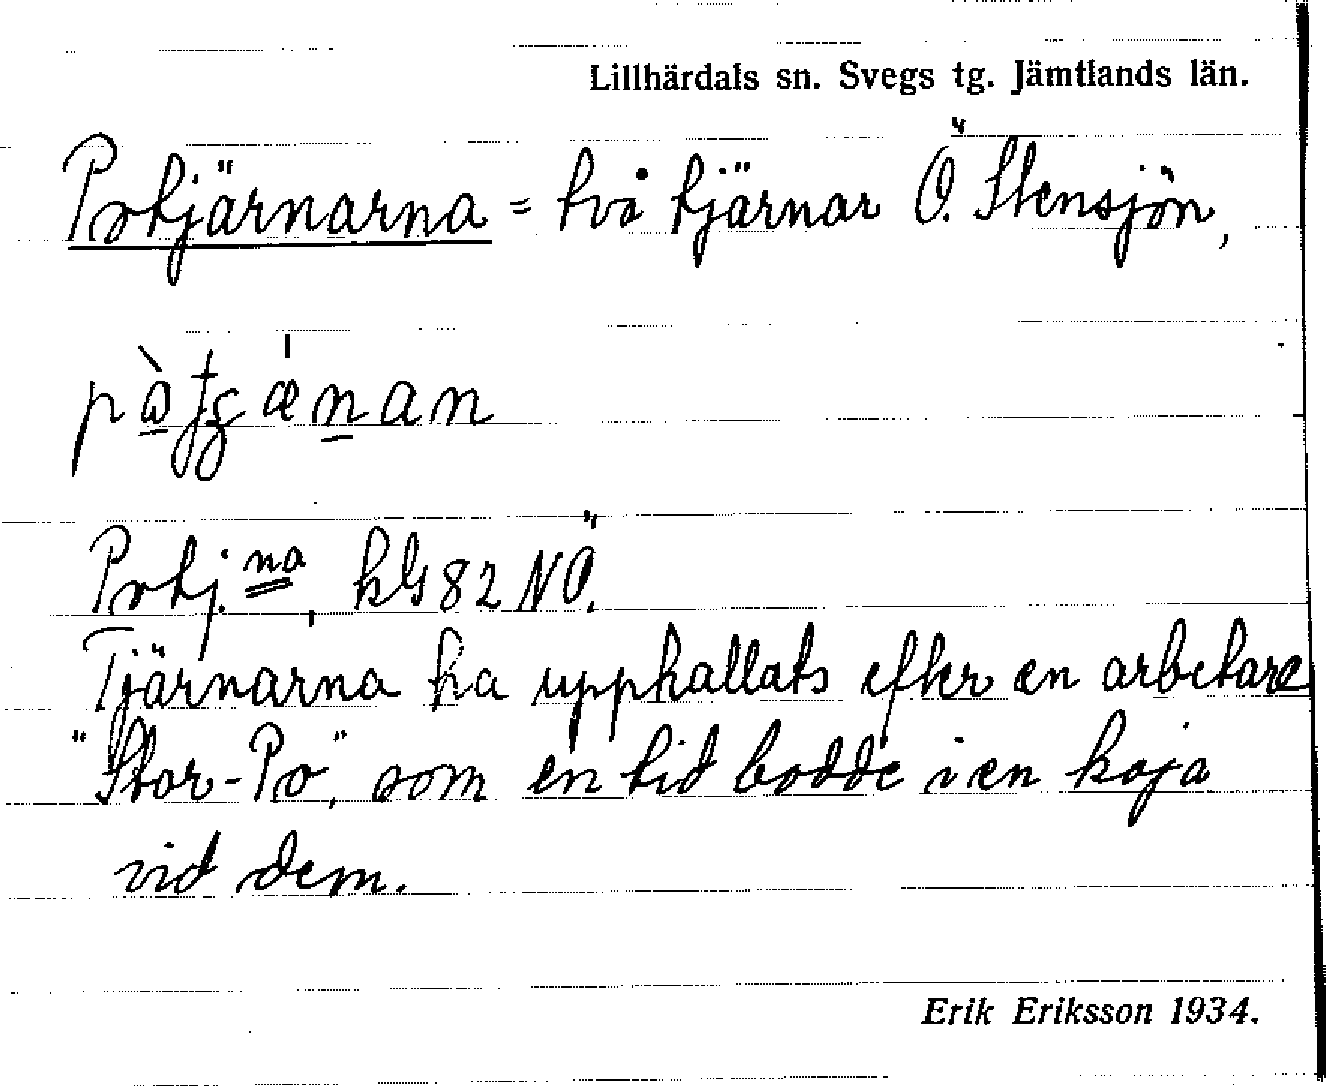 Lillhärdals sn. Svegs tg. Jämtlands län.
Potjärnarna = två tjärnar Ö. Stensjön,
Potj.na, kG 82 NÖ.
Tjärnarna ha uppkallats efter en arbetare
"Stor-Po", som en tid bodde i en koja
vid dem.
Erik Eriksson 1934.